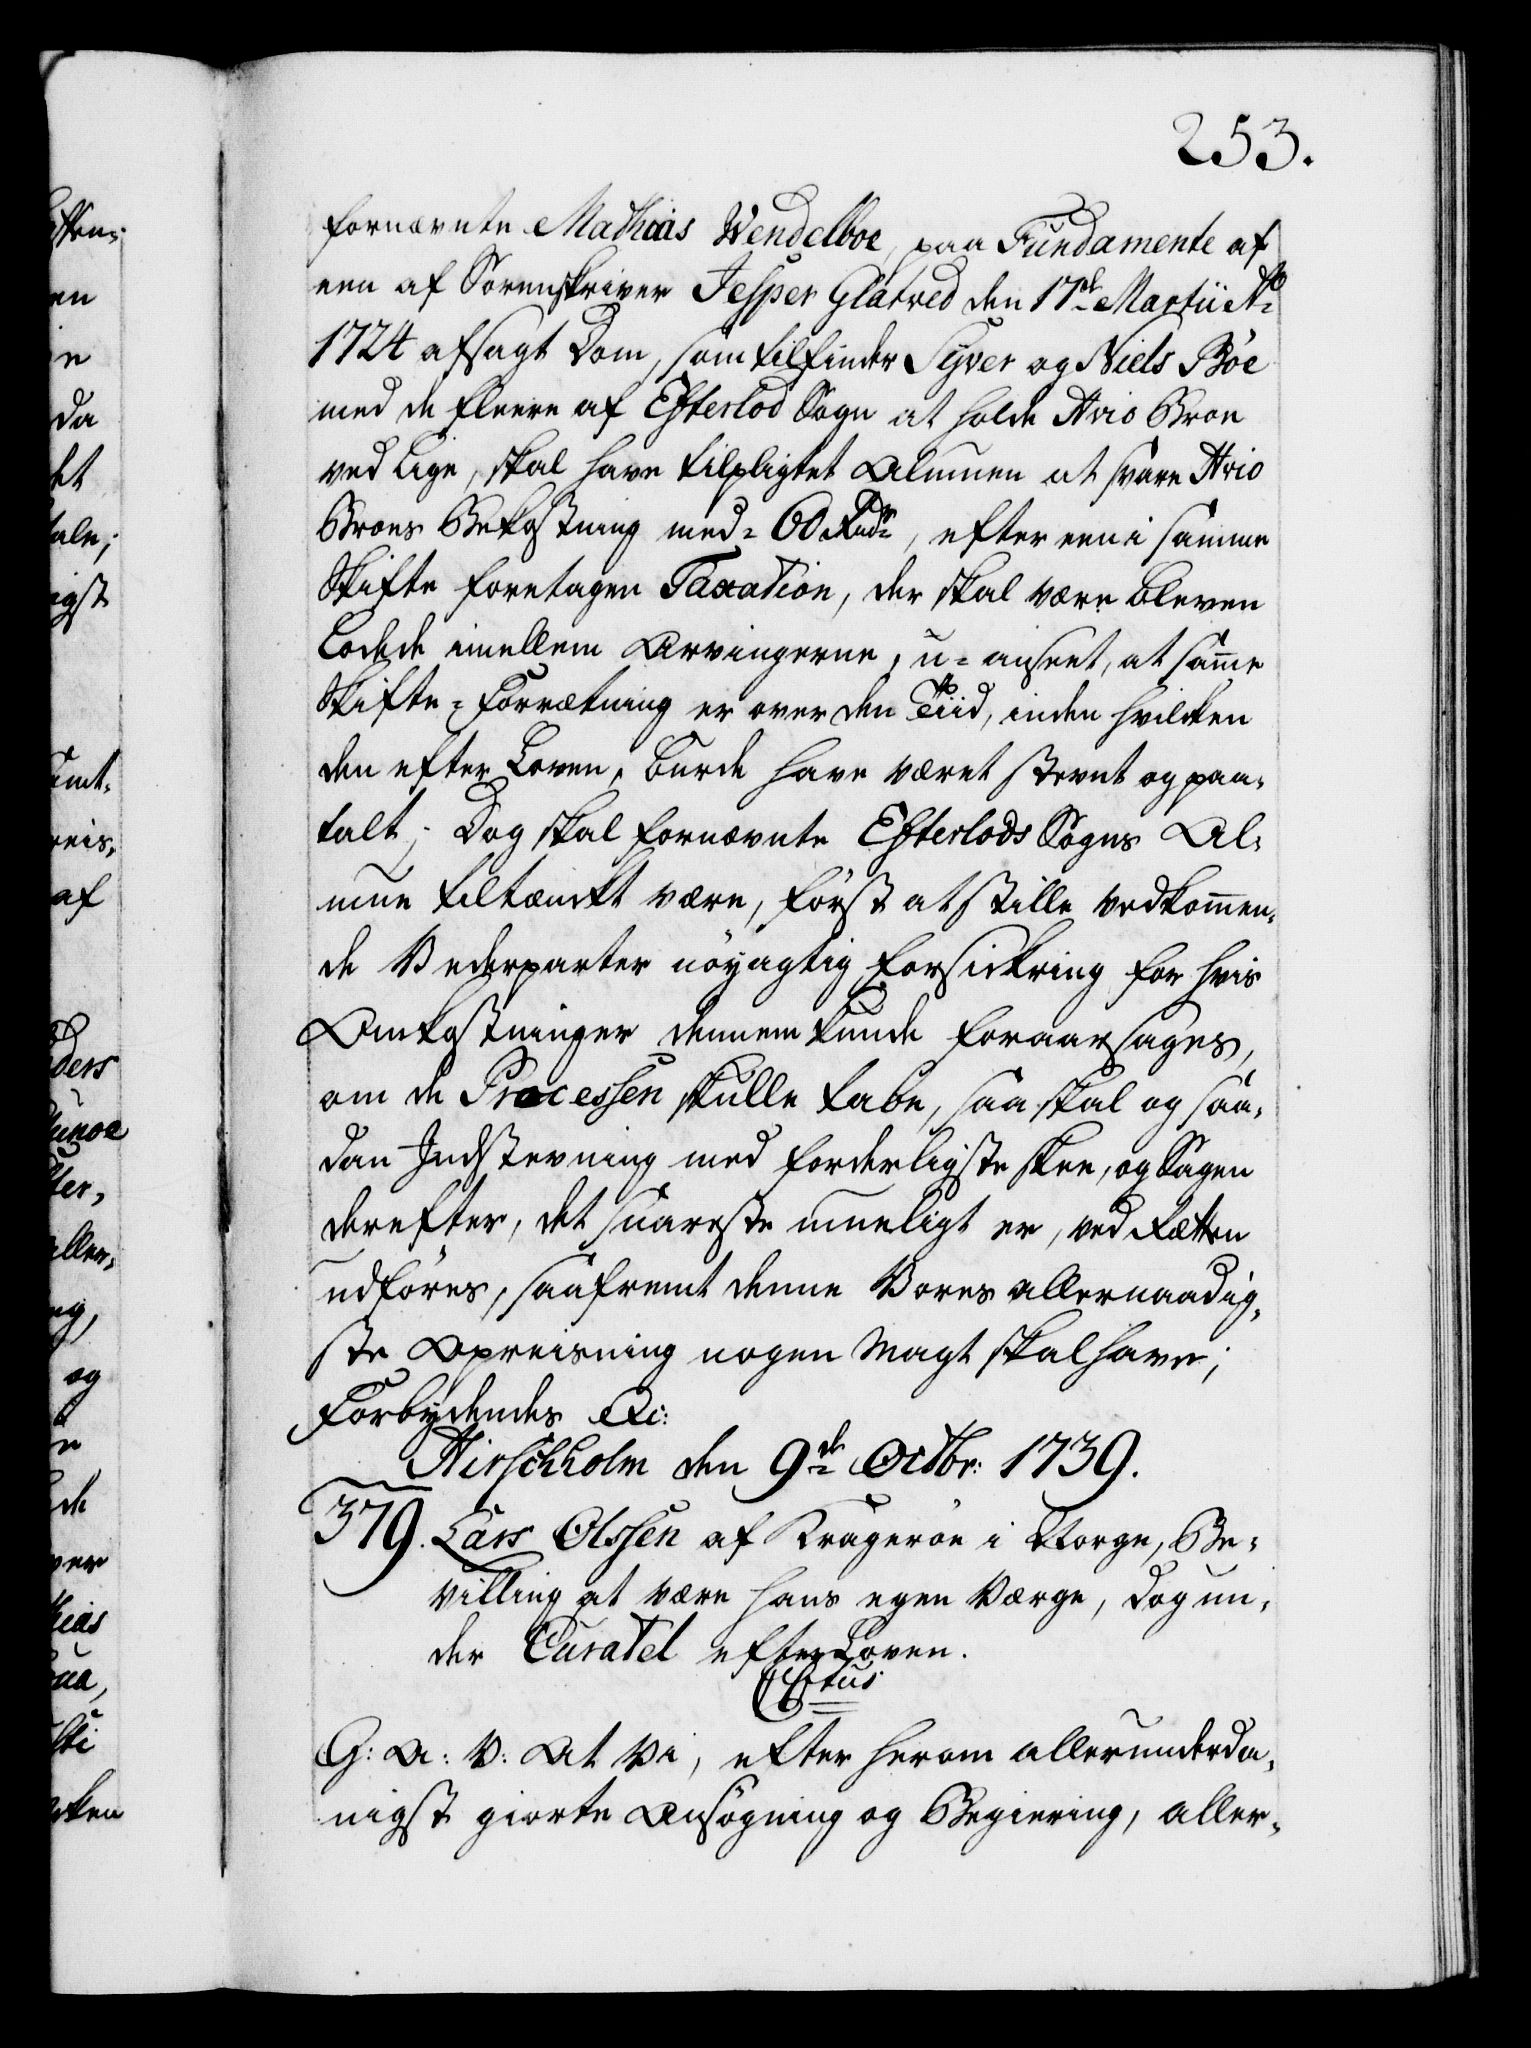 253.
fornævnte Mathias Wendelboe, paa Fundamente af
een af Sorenskriver Jesper Glatved den 17de Martii Ao
1724 afsagt Dom, som tilfinder Syver og Niels Böe
med de fleere af Efterlod Sogn at holde Hvio Broe
ved lige, skal have tilpligtet Almuen at svare Hvio
Broes Bekostning med 60 Rdr, efter een i samme
Skifte foretagen Taxation, der skal være bleven
Lodede imellem Arvingerne, u-anseet, at samme
Skifte-Forrætning er over den Tiid, inden hvilcken
den efter Loven, burde have været stevnt og paa-
talt; Dog skal fornævnte Efterlods Sogns Al-
mue tiltænckt være, först at stille vedkommen-
de Vederparter nöyagtig Forsickring for hvis
Omkostninger dennem kunde foraarsages,
om de Processen skulle tabe, saa skal og saa-
dan Indstevning med forderligste skee, og Sagen
derefter, det snareste mueligt er, ved Rætten
udföres, saafremt denne Vores allernaadig-
ste Opreisning nogen Magt skal have;
Forbydendes Rc:
Hirschholm den 9de Octbr: 1739.
379. Lars Olssen af Krageröe i Norge, Be-
villing at være hans egen Værge, dog un-
der Curatel efter Loven.
C6tus
G: A: V: At Vi, efter herom allerunderda-
nigst giorte Ansögning og Begiering, aller-